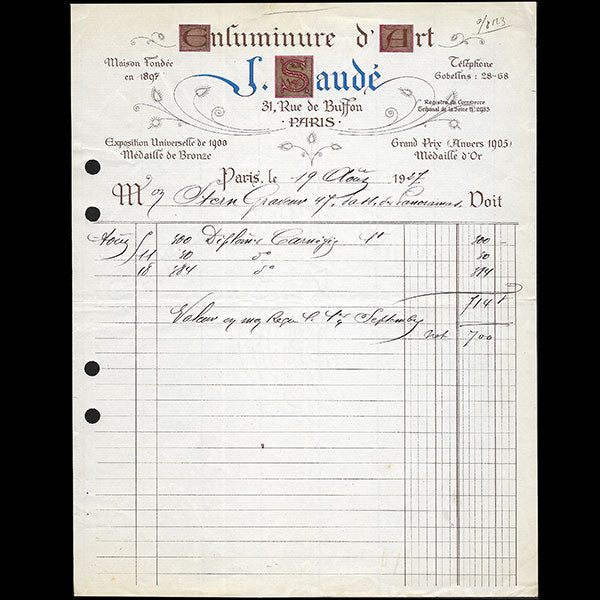 Enluminure d'Art
J. Saudé
Maison Fondée
en 1897
Téléphone
Gobelins : 28-68
31, Rue de Buffon
PARIS
Registre du Commerce
Tribunal de la Seine
Exposition Universelle de 1900
Médaille de Bronze
Grand Prix (Anvers 1905)
Médaille d'Or
Paris, le 19 Août 1927
M Stern Graveur 47, Pass. des Panoramas, Doit
Août 5 300 Diplôme Carnegie 1f 300 -
11 30 do 30
18 384 do 384
714 f
Valeur en mon Reçu Septembre
net 700